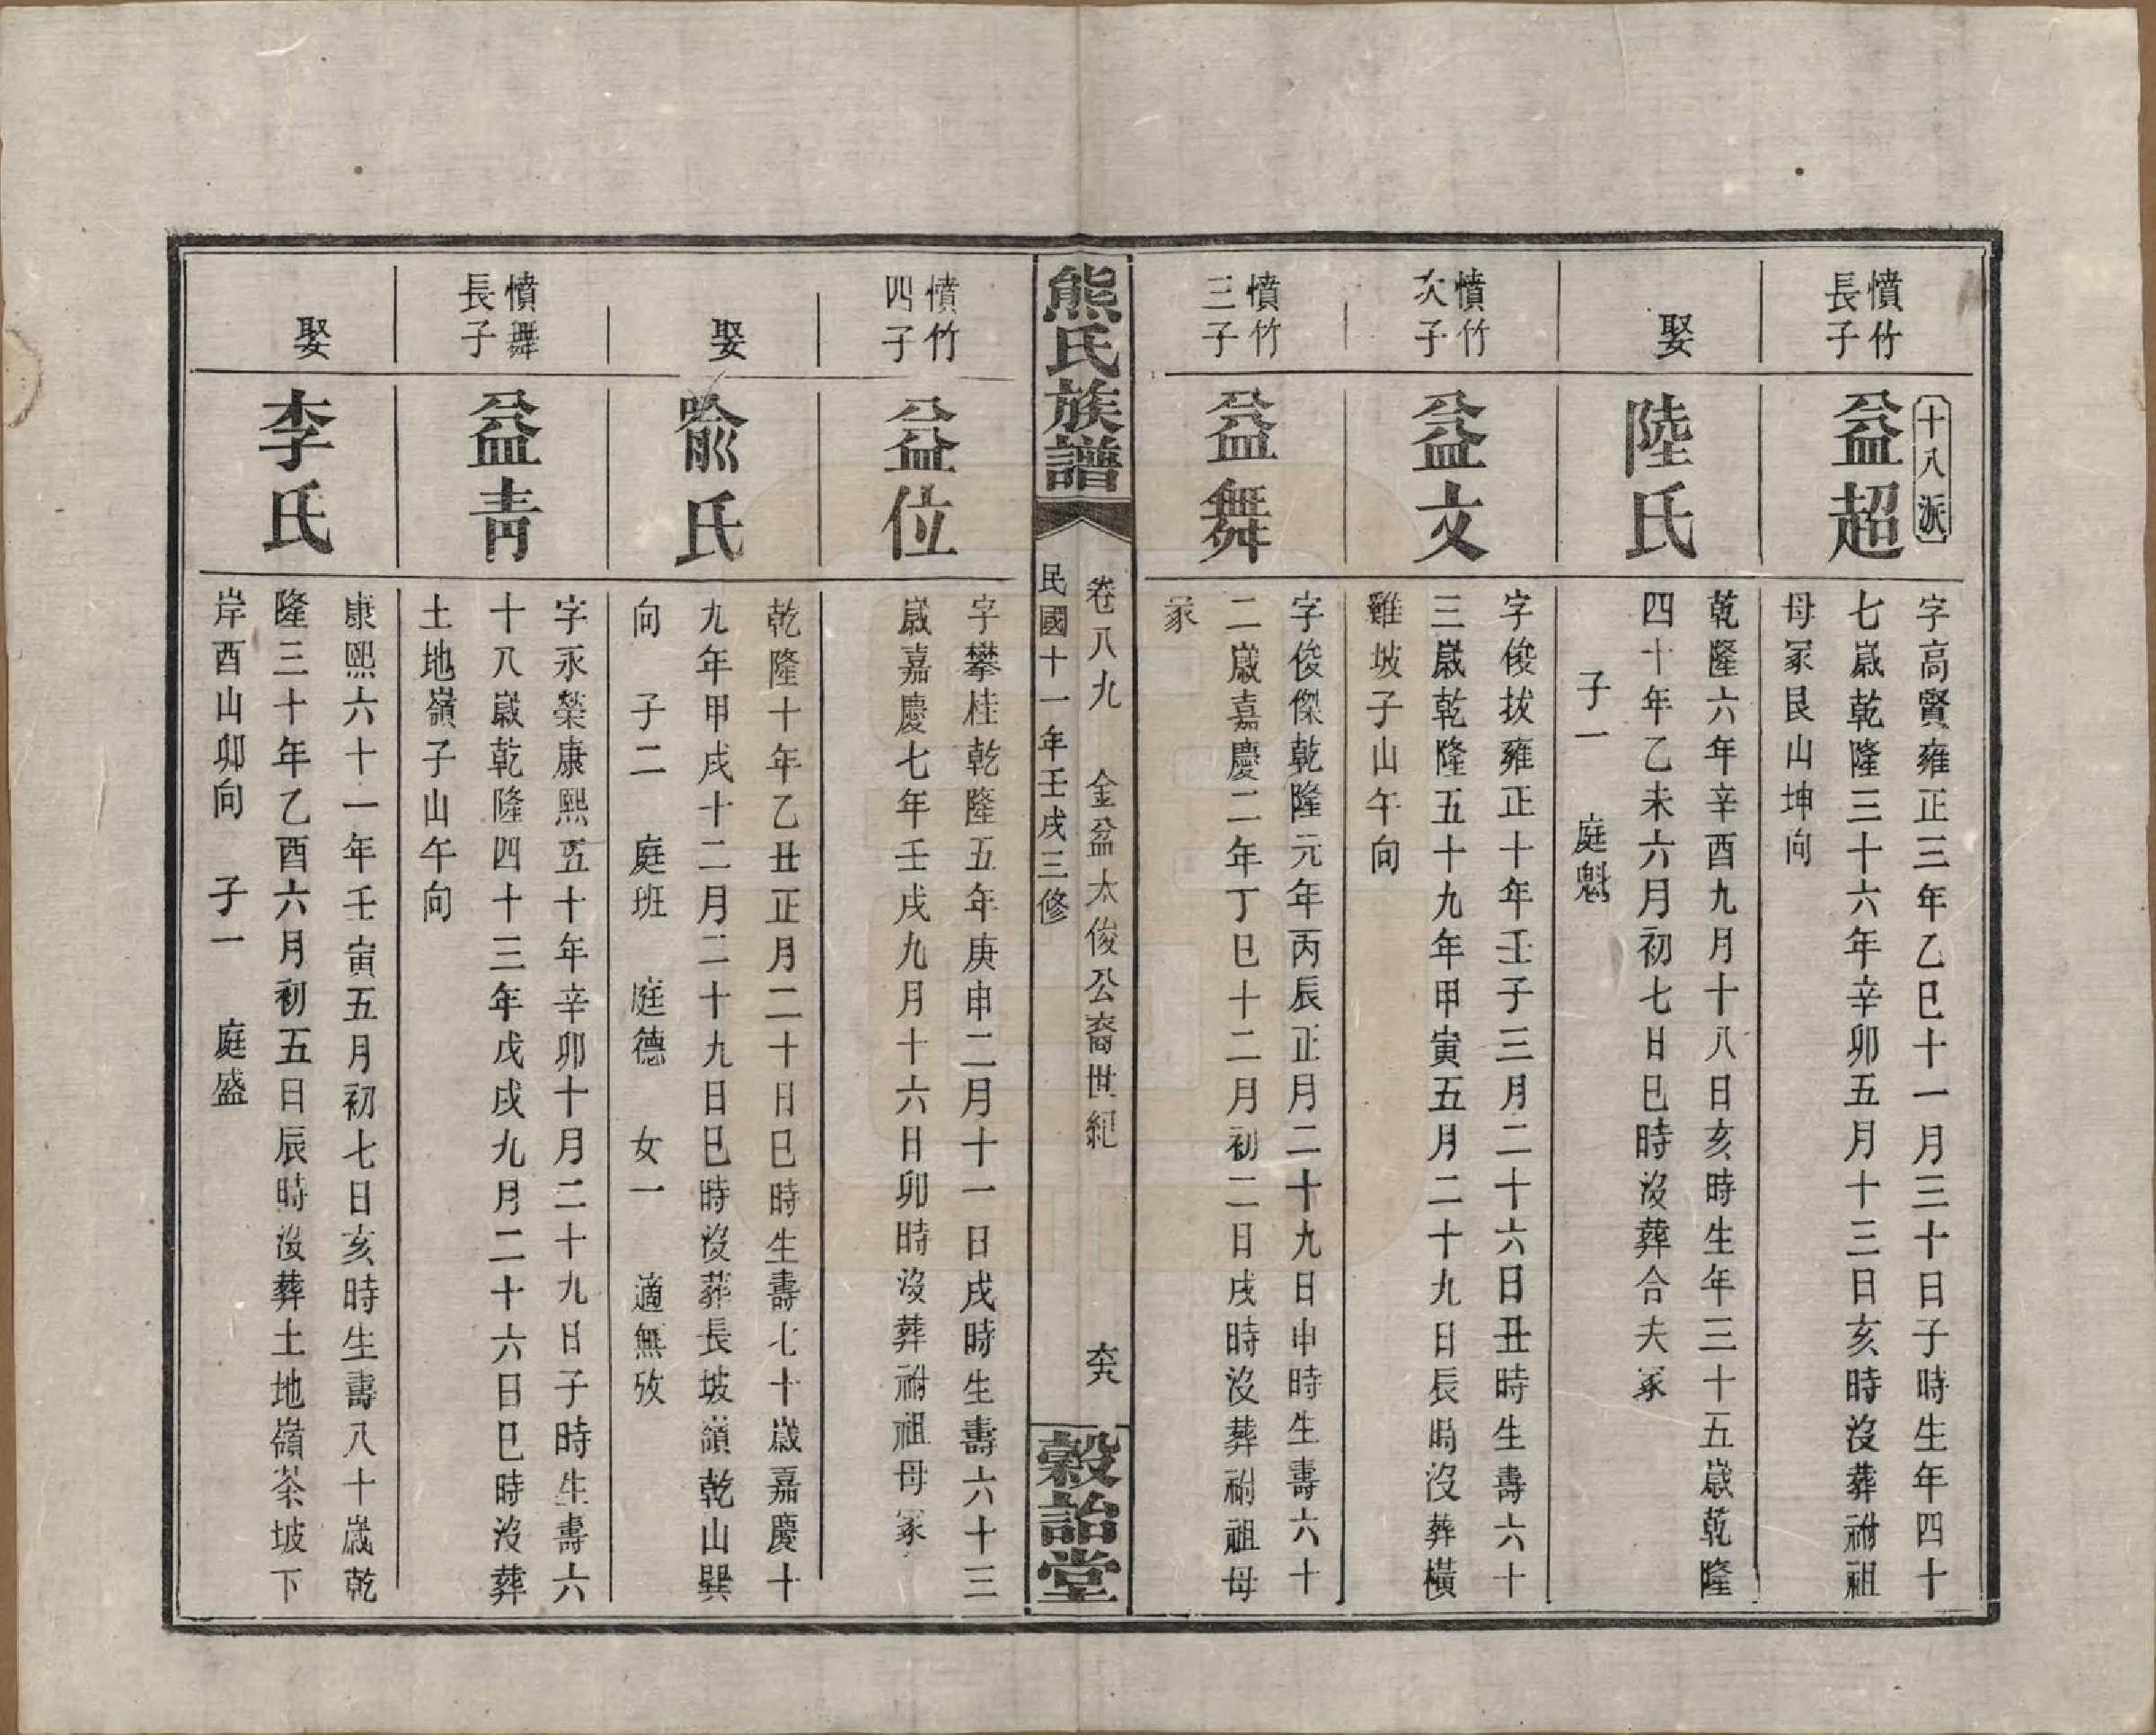 十八派
憤竹
長子
益超
字高賢雍正三年乙巳十一月三十日子時生年四十
七歲乾隆三十六年辛卯五月十三日亥時沒葬祔祖
母冢艮山坤向
娶
陸氏
乾隆六年辛酉九月十八日亥時生年三十五歲乾隆
四十年乙未六月初七日巳時沒葬合夫冢
子一 庭魁
憤竹
次子
益文
字俊拔雍正十年壬子三月二十六日丑時生壽六十
三歲乾隆五十九年甲寅五月二十九日辰時沒葬橫
雞坡子山午向
憤竹
三子
益舞
字俊傑乾隆元年丙辰正月二十九日申時生壽六十
二歲嘉慶二年丁巳十二月初二日戌時沒葬祔祖母
冢
熊氏族譜
卷八九 金盆太俊公裔世紀
民國十一年壬戌三修
榖詒堂
憤竹
四子
益位
字攀桂乾隆五年庚申二月十一日戌時生壽六十三
歲嘉慶七年壬戌九月十六日卯時沒葬祔祖母冢
娶
喻氏
乾隆十年乙丑正月二十日巳時生壽七十歲嘉慶十
九年甲戌十二月二十九日巳時沒葬長坡嶺乾山巽
向 子二 庭班 庭德 女一 適無攷
憤舞
長子
益青
字永榮康熙五十年辛卯十月二十九日子時生壽六
十八歲乾隆四十三年戊戌九月二十六日巳時沒葬
土地嶺子山午向
娶
李氏
康熙六十一年壬寅五月初七日亥時生壽八十歲乾
隆三十年乙酉六月初五日辰時沒葬土地嶺茶坡下
岸酉山卯向 子一 庭盛